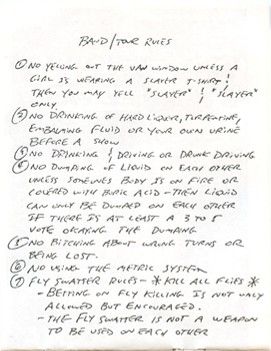 BAND/TOUR RULES
① NO YELLING OUT THE VAN WINDOW UNLESS A
GIRL IS WEARING A SLAYER T-SHIRT!
THEN YOU MAY YELL "SLAYER"! "SLAYER"
ONLY.
② NO DRINKING OF HARD LIQUOR, TURPENTINE,
EMBALMING FLUID OR YOUR OWN URINE
BEFORE A SHOW
③ NO DRINKING & DRIVING OR DRUNK DRIVING
④ NO DUMPING OF LIQUID ON EACH OTHER
UNLESS SOMEONES BODY IS ON FIRE OR
COVERED WITH BURIC ACID - THEN LIQUID
CAN ONLY BE DUMPED ON EACH OTHER
IF THERE IS AT LEAST A 3 TO 5
VOTE OKAYING THE DUMPING
⑤ NO BITCHING ABOUT WRONG TURNS OR
BEING LOST.
⑥ NO USING THE METRIC SYSTEM
⑦ FLY SWATTER RULES - *KILL ALL FLIES*
- BETTING ON FLY KILLING IS NOT ONLY
ALLOWED BUT ENCOURAGED.
- THE FLY SWATTER IS NOT A WEAPON
TO BE USED ON EACH OTHER